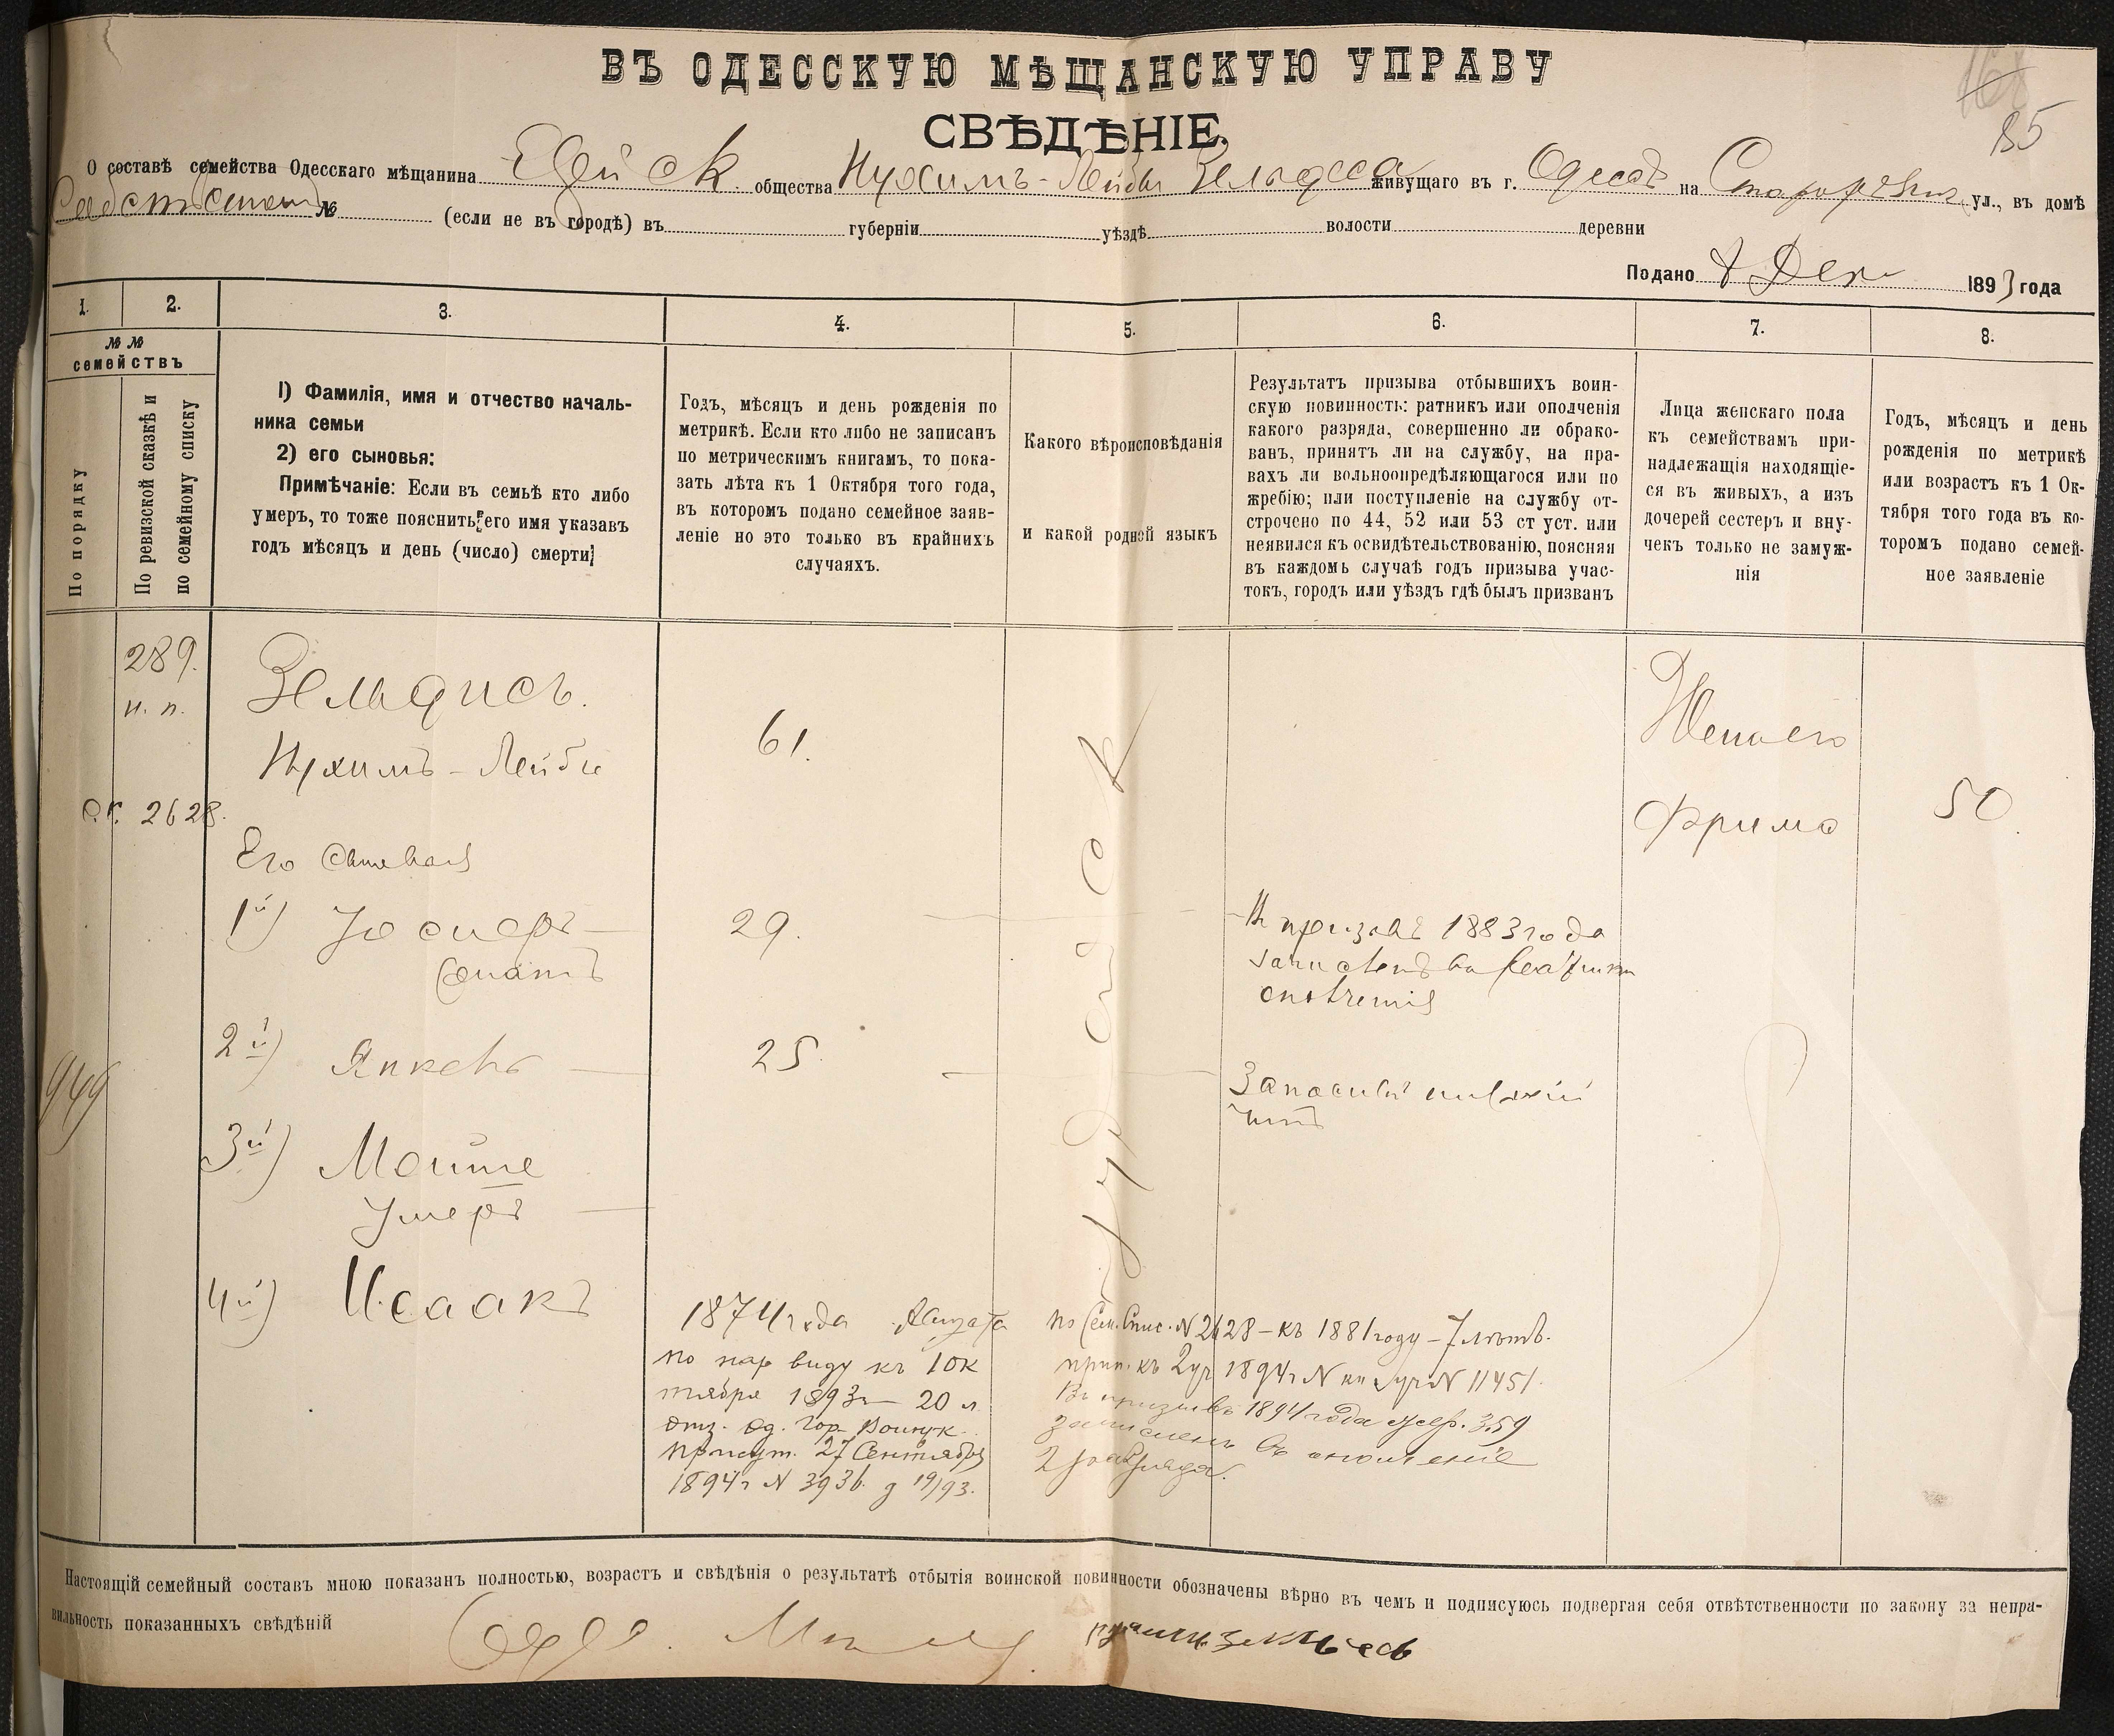 ВЪ ОДЕССКУЮ МѢЩАНСКУЮ УПРАВУ
СВѢДѢНІЕ.
85
О составѣ семейства Одесскаго мѣщанина Евйск. общества Нухимъ-Лейбы Зельдеса живущаго въ г. Одессѣ на ул., въ домѣ
Собственном № (если не въ городѣ) въ губерніи уѣздѣ волости деревни
Подано 8 Дек 1893 года
1. 2. 3. 4. 5. 6. 7. 8.
№ №
семействъ
По порядку
По ревизской сказкѣ и
по семейному списку
1) Фамилія, имя и отчество началь-
ника семьи
2) его сыновья:
Примѣчаніе: Если въ семьѣ кто либо
умеръ, то тоже пояснить его имя указавъ
годъ мѣсяцъ и день (число) смерти
Годъ, мѣсяцъ и день рожденія по
метрикѣ. Если кто либо не записанъ
по метрическимъ книгамъ, то пока-
зать лѣта къ 1 Октября того года,
въ которомъ подано семейное заяв-
леніе но это только въ крайнихъ
случаяхъ.
Какого вѣроисповѣданія
и какой родной языкъ
Результатъ призыва отбывшихъ воин-
скую повинность: ратникъ или ополченія
какого разряда, совершенно ли обрако-
ванъ, принятъ ли на службу, на пра-
вахъ ли вольноопредѣляющагося или по
жребію; или поступленіе на службу от-
строчено по 44, 52 или 53 ст уст. или
неявился къ освидѣтельствованію, поясняя
въ каждомъ случаѣ годъ призыва учас-
токъ, городъ или уѣздъ гдѣ былъ призванъ
Лица женскаго пола
къ семействамъ при-
надлежащія находящіе-
ся въ живыхъ, а изъ
дочерей сестеръ и вну-
чекъ только не замуж-
нія
Годъ, мѣсяцъ и день
рожденія по метрикѣ
или возрастъ къ 1 Ок-
тября того года въ ко-
торомъ подано семей-
ное заявленіе
289.
н. п.
Зельдисъ.
Нухимъ-Лейбъ
61.
Жена его
Фрима
50
2628.
Его сыновья
1й) Іосифъ
29.
призывѣ 1883 года
записанъ въ ратники
ополченія
2й) Янкель
25
Запасный нижній
чинъ
949
3й) Мойше
умеръ
4й) Исаакъ
1874 года Августа
по нар виду къ 1 Ок
тября 1893 г — 20 л
отз. Од. Гор. Воинск.
присут. 27 Сентября
1894 г N 3936. д 19/93.
по Сем. Спис. N 2628 - къ 1881 году - 7 лѣтъ.
прип. къ 2 уч 1894 г N 11451.
Въ призывъ 1894 года жер. 359
записанъ въ ополченіе
2 разряда.
Настоящій семейный составъ мною показанъ полностью, возрастъ и свѣдѣнія о результатѣ отбытія воинской повинности обозначены вѣрно въ чемъ и подписуюсь подвергая себя отвѣтственности по закону за непра-
вильность показанныхъ свѣдѣній